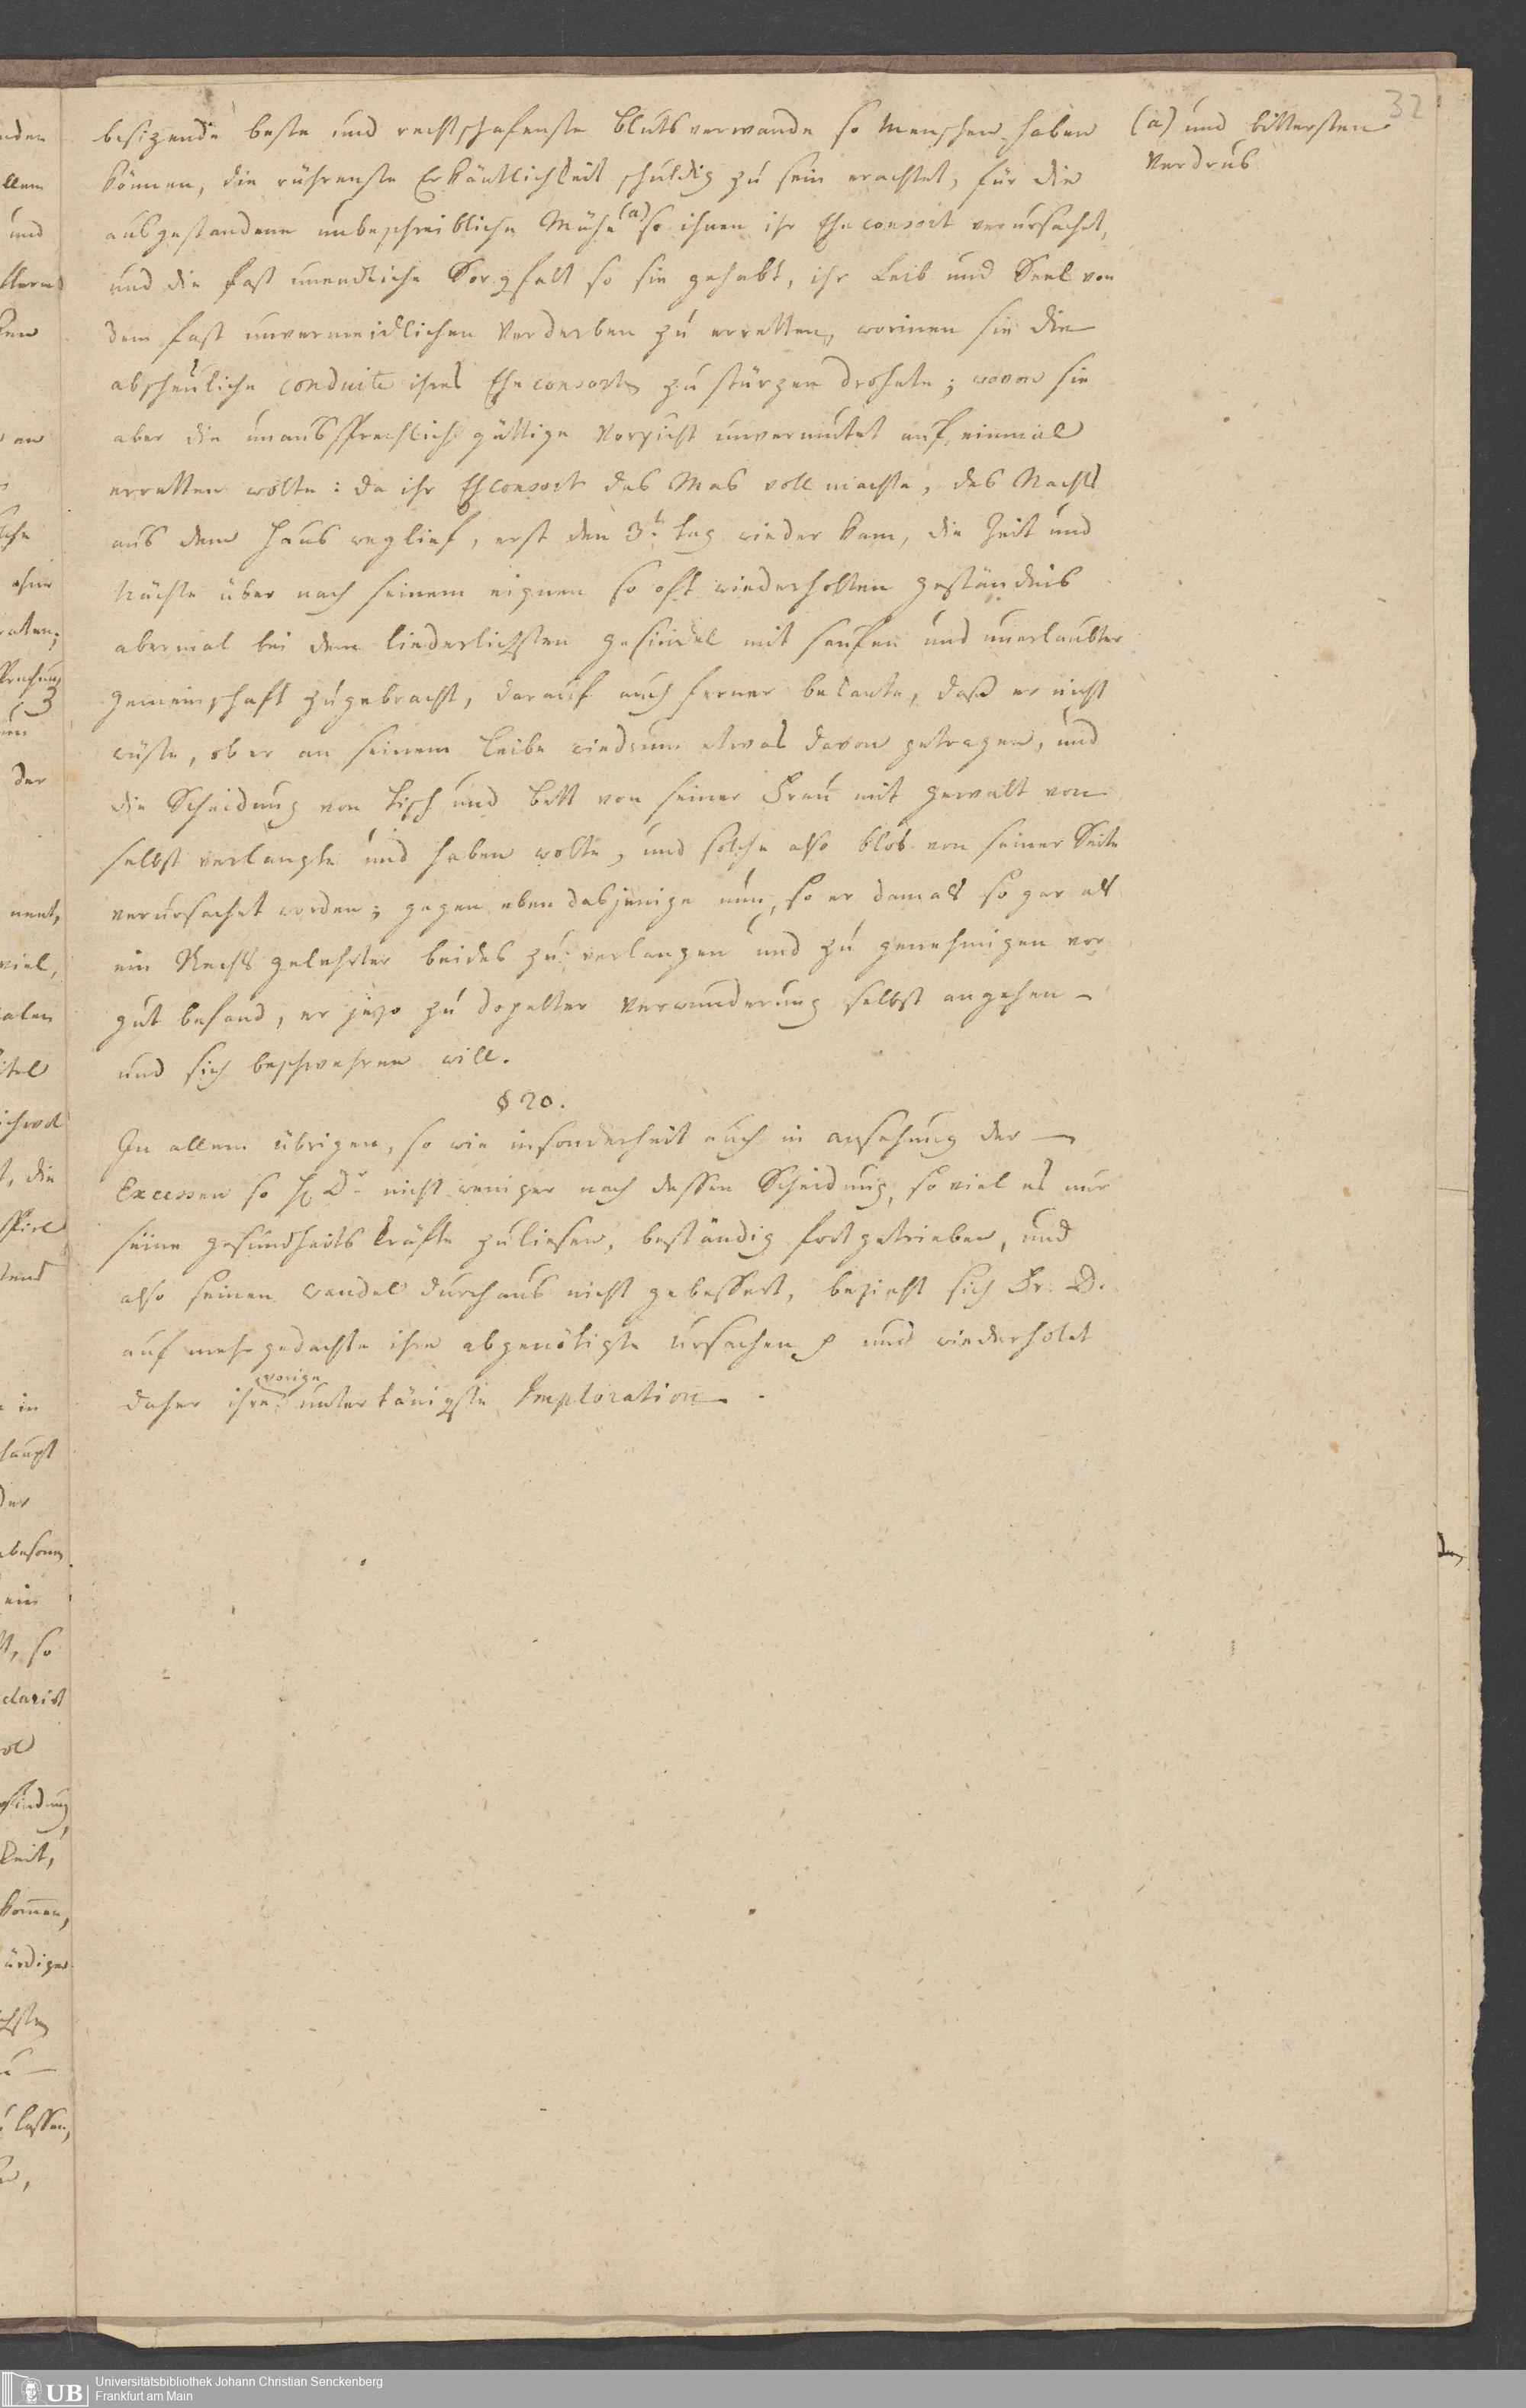 32
besizende beste und rechtschafenste Blutsverwande so Menschen haben
können, die rührenste Erkäntlichkeit schuldig zu sein erachtet, für die
ausgestandene unbeschreibliche Mühe (a) so ihnen ihr Eheconsort verursacht,
und die fast unendliche Sorgfalt so sie gehabt, ihr Leib und Seel von
dem fast unvermeidlichen Verderben zu erretten, worinen sie die
abscheuliche conduite ihres Eheconsorten zu stürzen drohete; wovon sie
aber die unaussprechlich güttige Vorsicht unvermutet auf einmal
erretten wolte: da ihr Ehconsort das Mas voll machte, des Nachts
aus dem Haus weglief, erst den 3t. Tag wieder kam, die Zeit und
Nächte über nach seinem eignen so oft wiederholten geständnis
abermal bei dem liederlichsten gesindel mit saufen und unerlaubter
gemeinschaft zugebracht, darauf auch ferner bekante, daß er nicht
wüste, ob er an seinem Leibe wiedrum etwas davon getragen, und
die Scheidung von Tisch und Bett von seiner Frau mit gewalt von
selbst verlangte und haben wolte, und solche also blos von seiner Seite
verursachet worden; gegen eben dasjenige nun, so er damals so gar als
ein Rechtsgelehrter beides zu verlangen und zu genehmigen vor
gut befand, er jezo zu dopelter Verwunderung selbst angehen
und sich beschwehren will.
§ 20.
In allem übrigen, so wie insonderheit auch in ansehung der
Excessen so H. Dr. nicht weniger nach dessen Scheidung, so viel es nur
seine gesundheits kräfte zuliesen, beständig fortgetrieben, und
also seinen Wandel durchaus nicht gebessert, bezieht sich Fr. D.
auf mehrgedachte ihre abgenötigte Ursachen p und wiederholet
daher ihre vorige untertänigste Imploration.
(a) und bittersten
Verdrus
Universitätsbibliothek Johann Christian Senckenberg
Frankfurt am Main
UB